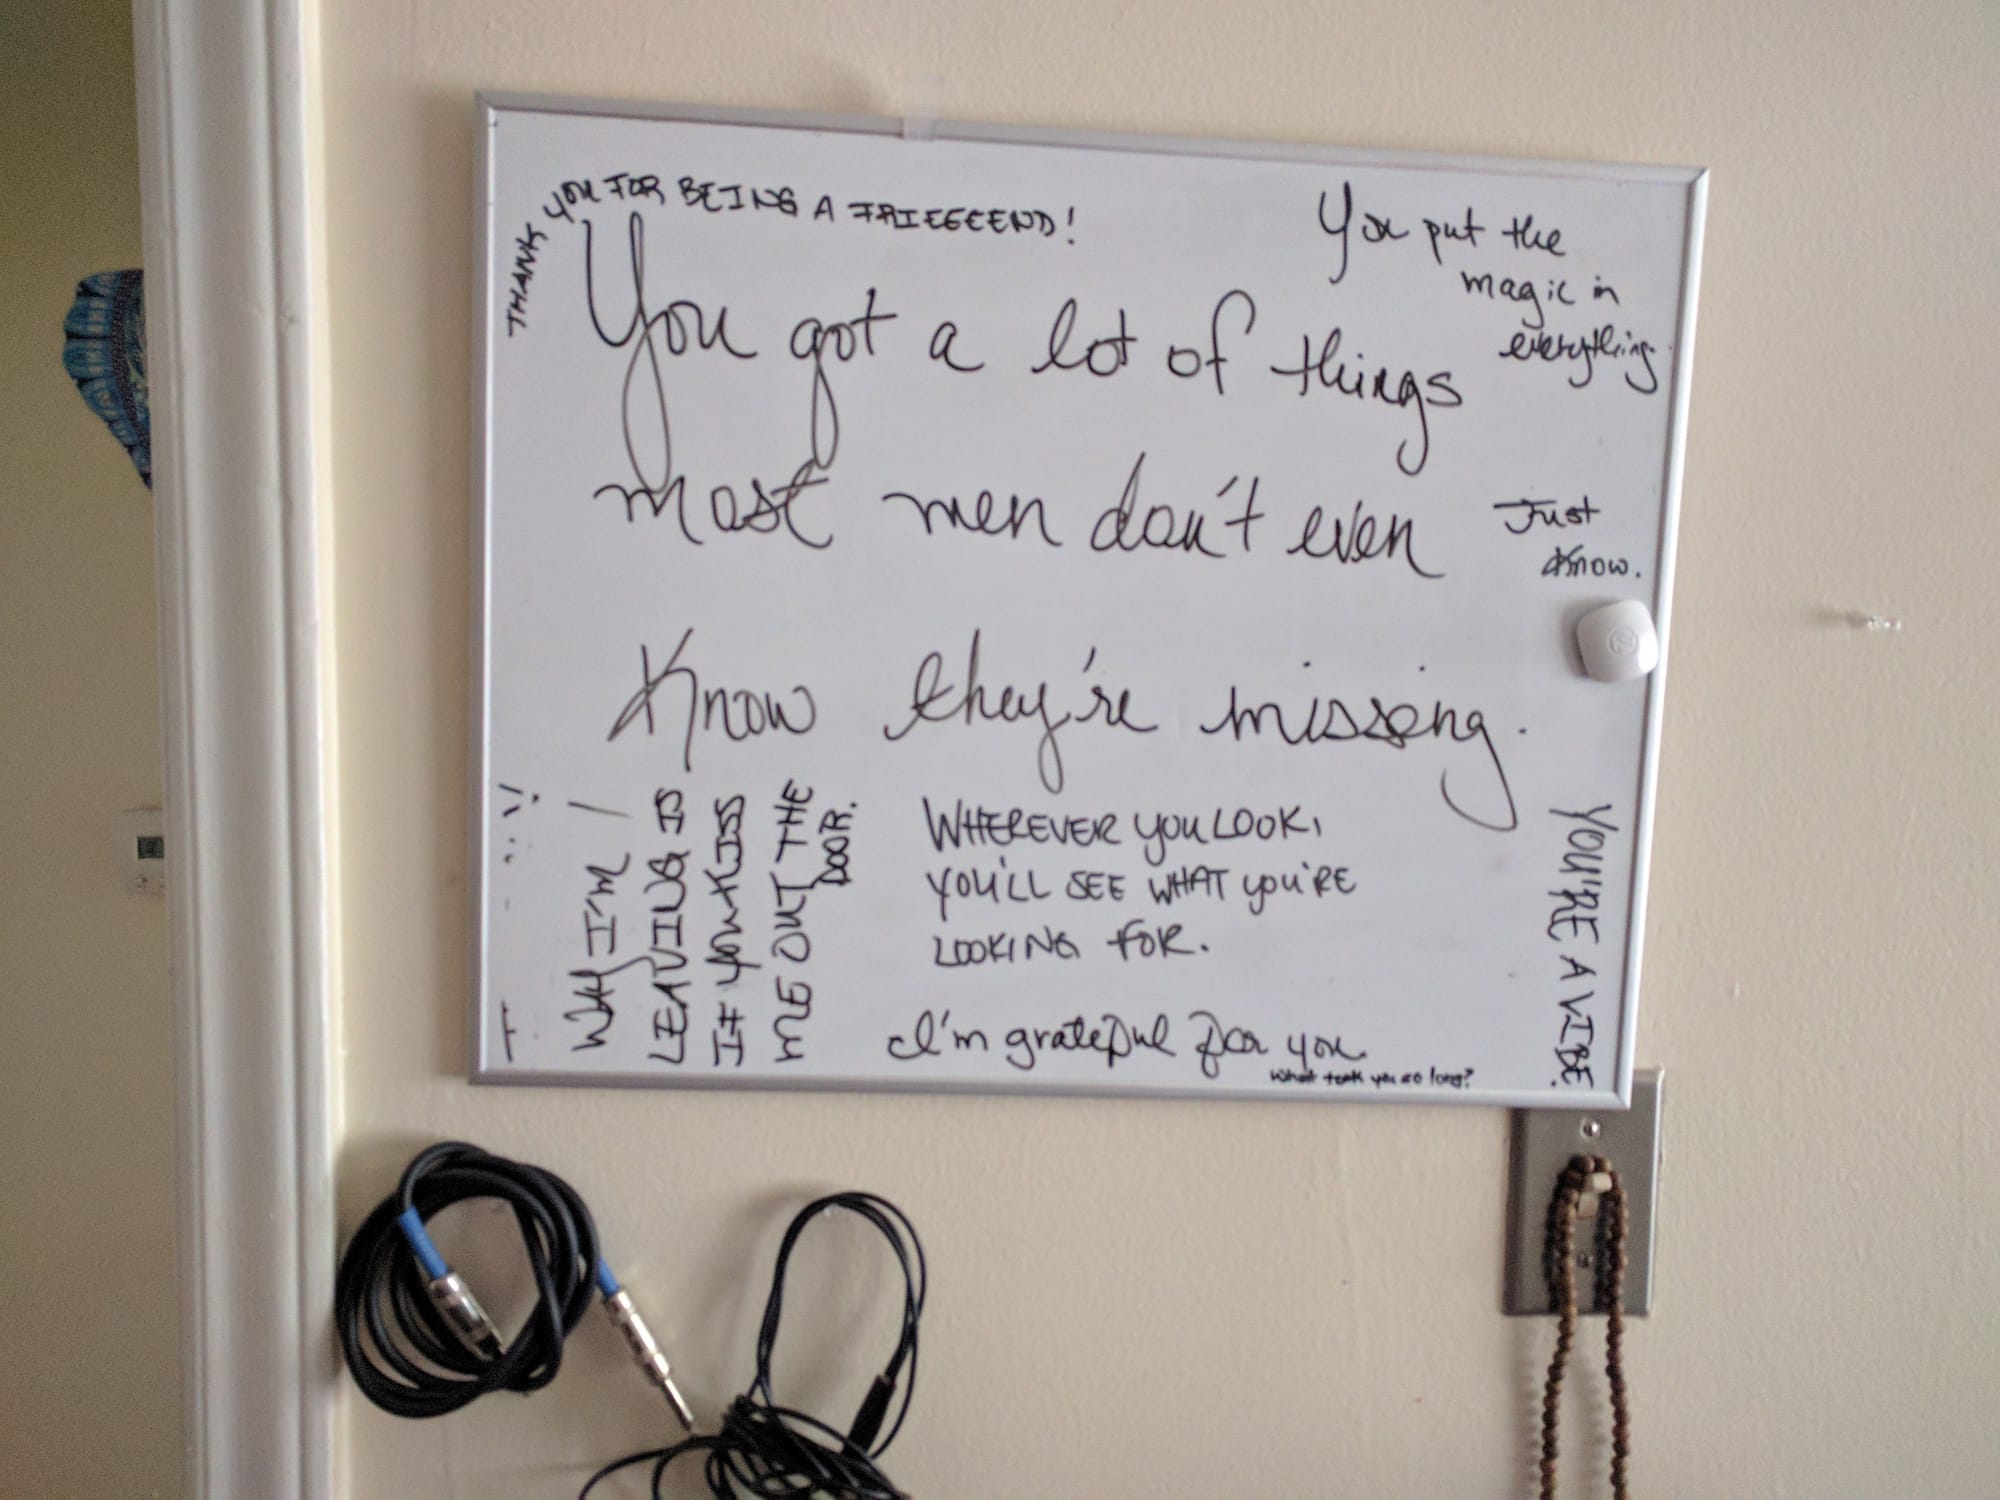 THANK YOU FOR BEING A FRIEEEEND!
You put the
magic in
everything.
You got a lot of things
most men don't even
Just
Know.
Know they're missing.
WHEREVER YOU LOOK,
YOU'LL SEE WHAT YOU'RE
LOOKING FOR.
I'm grateful for you.
What took you so long?
WAY I'M
LEAVING IS
IF YOU KISS
ME OUT THE
DOOR.
YOU'RE A VIBE.